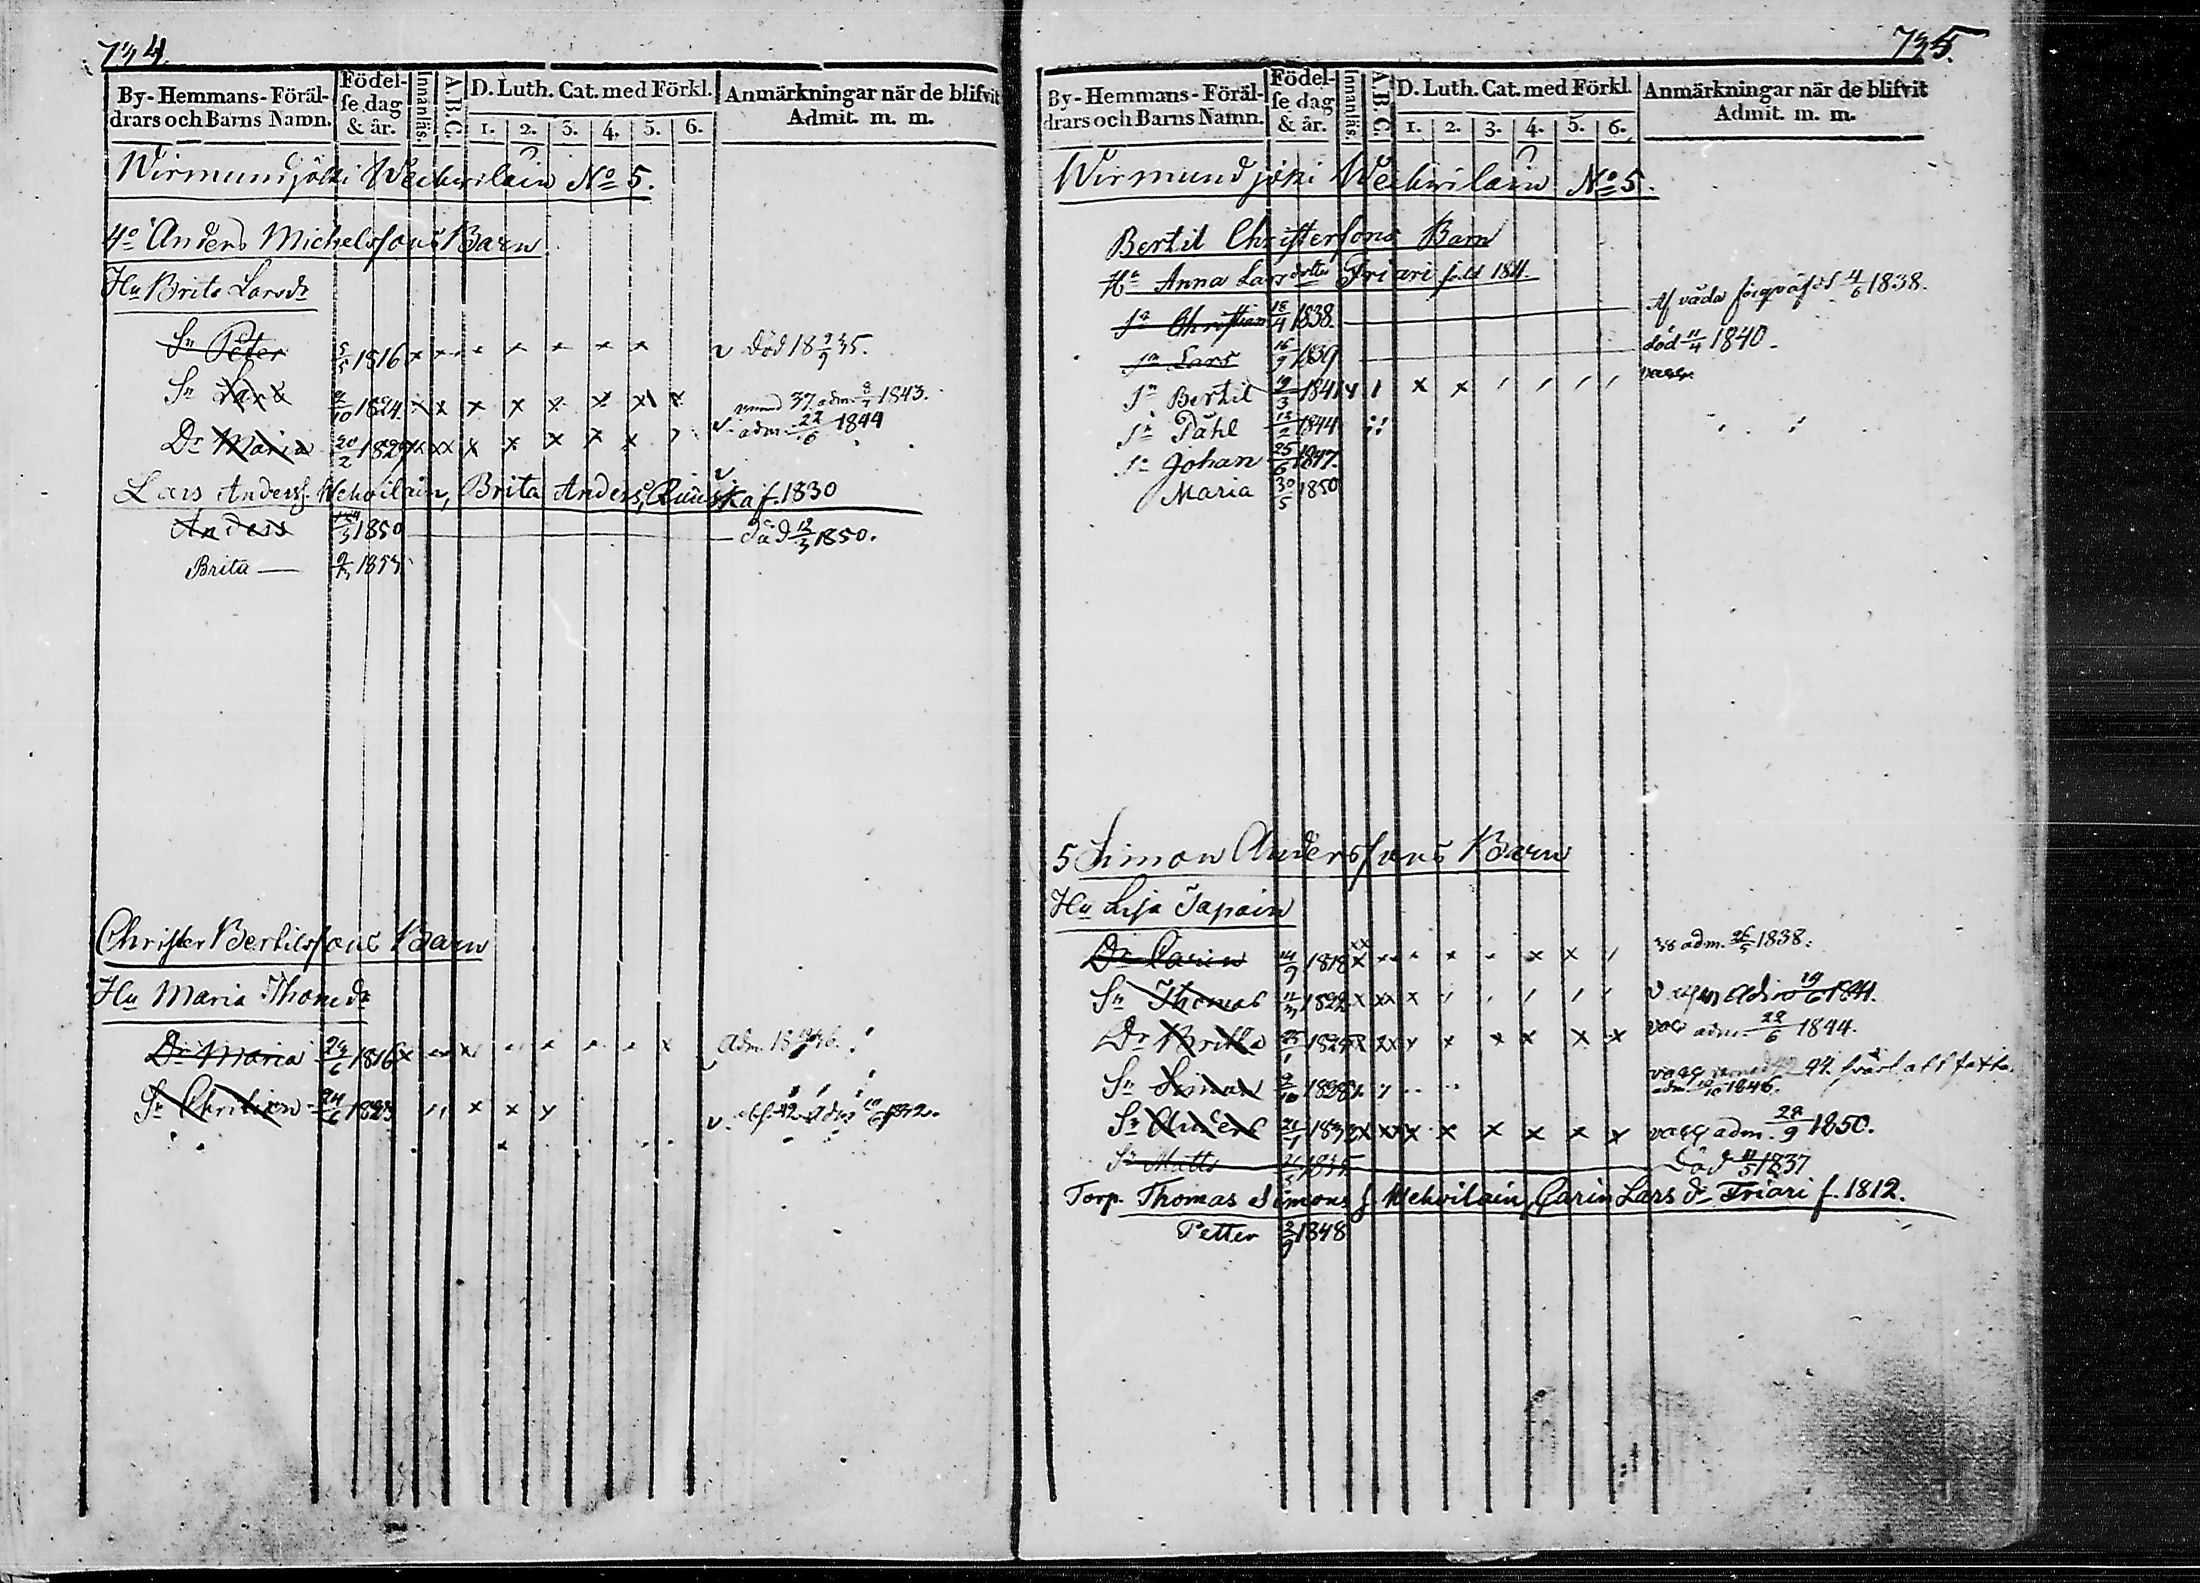 734.
By-Hemmans-Föräl-
drars och Barns Namn.
Födel-
se dag
& år.
Innanläs.
A.B.C.
D. Luth. Cat. med Förkl.
1. 2. 3. 4. 5. 6.
Anmärkningar när de blifvit
Admit. m. m.
Wirmundjöki Wechvilain No 5.
4o Anders Michelssons Barn
Hu Brita Larsdr
Sn Peter 5/5 1816 död 18 9/9 35.
Sn Lars 9/10 1824 37 adm. 1843.
Dr Maria 20/2 1829 adm. 22/6 1844
Lars Anderss. Wehvilain, Brita Andersd. f. 1830
Anders 1850 död 12/3 1850.
Brita —
Christer Bertilssons Barn
Hu Maria Thomdr
Dr Maria 1816 Adm.
Sn Christian 24/6 1823
735.
By-Hemmans-Föräl-
drars och Barns Namn.
Födel-
se dag
& år.
Innanläs.
A.B.C.
D. Luth. Cat. med Förkl.
1. 2. 3. 4. 5. 6.
Anmärkningar när de blifvit
Admit. m. m.
Wirmundjöki Wechvilain No 5.
Bertil Christersons Barn
Hu Anna Larsdotter Triari född 1811.
Sn Christian 18/4 1838. Af våda 4/6 1838.
Sn Lars 16/9 1839 död 11/4 1840.
Sn Bertil 19/3 1841 vacc
Sn Påhl 12/2 1844
Sn Johan 25/6 1847.
Maria 30/5 1850
5 Simon Anderssons Barn
Hu Lisa Tapain
Dr Carin 14/9 1818 38 adm. 26/5 1838.
Sn Thomas 11/3 1822 19/6 1841.
Dr Britta 25/1 1825 vac adm. 22/6 1844.
Sn Simon 9/10 1828 vacc svårt att fatta.
adm. 1846.
Sn Anders 1832 vacc adm. 28/9 1850.
Sn Matts 1835 död 11/5 1837
Torp. Thomas Simons S. Wehvilain, Carin Lars dr Triari f. 1812.
Petter 2/9 1848